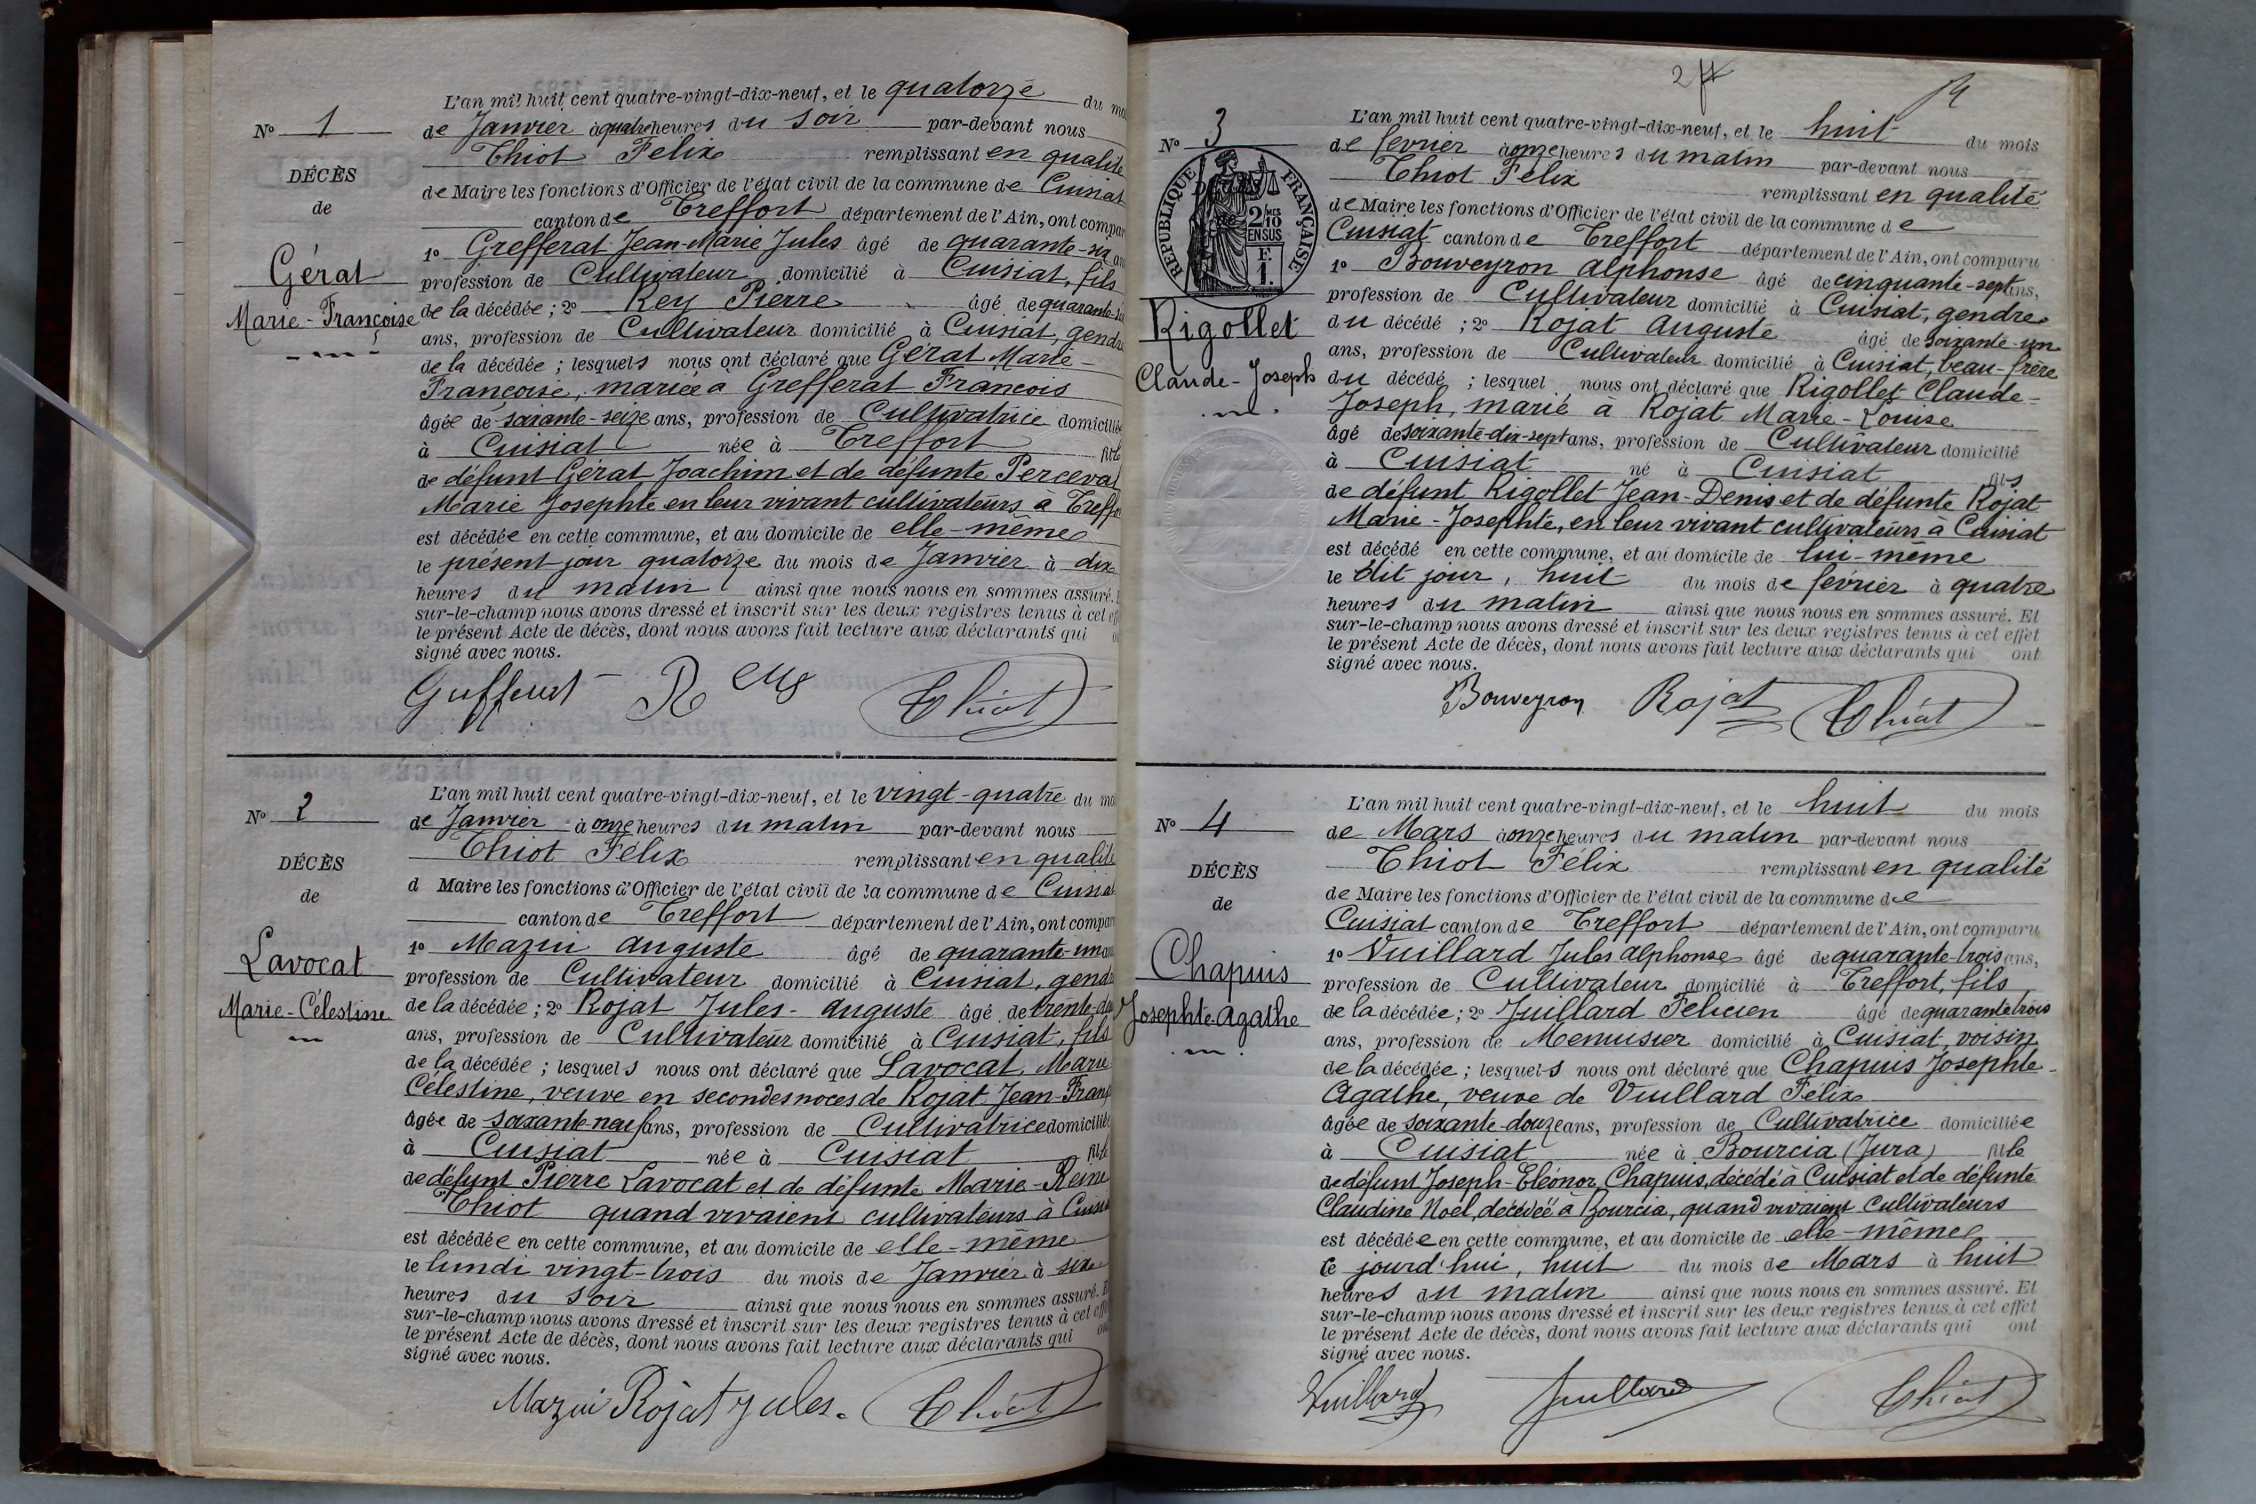 L'an mil huit cent quatre-vingt-dix-neuf, et le quatorze du
N° 1
de Janvier à quatre heures du soir par-devant nous
Thiot Félix remplissant en qualité
DÉCÈS
de Maire les fonctions d'Officier de l'état civil de la commune de Cuisiat
de
canton de Treffort département de l'Ain, ont
1° Grefferat Jean-Marie Jules âgé de quarante-six
Gérat
profession de Cultivateur domicilié à Cuisiat, fils
Marie-Françoise
de la décédée ; 2° Rey Pierre âgé de
ans, profession de Cultivateur domicilié à Cuisiat, gendre
de la décédée ; lesquels nous ont déclaré que Gérat Marie-
Françoise, mariée à Grefferat François
âgée de soixante-seize ans, profession de Cultivatrice domiciliée
à Cuisiat née à Treffort fille
de défunt Gérat Joachim et de défunte Perceval
Marie Josephte en leur vivant cultivateurs à
est décédée en cette commune, et au domicile de elle-même
le présent jour quatorze du mois de Janvier à dix
heures du matin ainsi que nous nous en sommes assuré.
sur-le-champ nous avons dressé et inscrit sur les deux registres tenus à cet
le présent Acte de décès, dont nous avons fait lecture aux déclarants qui
signé avec nous.
Grefferat Rey Thiot
L'an mil huit cent quatre-vingt-dix-neuf, et le vingt-quatre du
N° 2
de Janvier à onze heures du matin par-devant nous
Thiot Félix remplissant en qualité
DÉCÈS
d Maire les fonctions d'Officier de l'état civil de la commune de Cuisiat
de
canton de Treffort département de l'Ain, ont
1° Mazui Auguste âgé de quarante-un
Lavocat
profession de Cultivateur domicilié à Cuisiat, gendre
Marie-Célestine
de la décédée ; 2° Rojat Jules-Auguste âgé de
ans, profession de Cultivateur domicilié à Cuisiat, fils
de la décédée ; lesquels nous ont déclaré que Lavocat Marie
Célestine, veuve en secondes noces de Rojat Jean-
âgée de soixante-neuf ans, profession de Cultivatrice domiciliée
à Cuisiat née à Cuisiat fille
de défunt Pierre Lavocat et de défunte Marie-Reine
Thiot quand vivaient cultivateurs à Cuisiat
est décédée en cette commune, et au domicile de elle-même
le lundi vingt-trois du mois de Janvier à six
heures du soir ainsi que nous nous en sommes assuré.
sur-le-champ nous avons dressé et inscrit sur les deux registres tenus à cet
le présent Acte de décès, dont nous avons fait lecture aux déclarants qui
signé avec nous.
Mazui Rojat Jules. Thiot
2
L'an mil huit cent quatre-vingt-dix-neuf, et le huit du mois
N° 3
de février à onze heures du matin par-devant nous
Thiot Félix remplissant en qualité
de Maire les fonctions d'Officier de l'état civil de la commune de
RÉPUBLIQUE FRANÇAISE
2/10 EN SUS
F. 1.
Cuisiat canton de Treffort département de l'Ain, ont comparu
1° Bouveyron Alphonse âgé de cinquante-sept ans,
profession de Cultivateur domicilié à Cuisiat, gendre
Rigollet
du décédé ; 2° Rojat Auguste âgé de soixante-un
ans, profession de Cultivateur domicilié à Cuisiat, beau-frère
Claude-Joseph
du décédé ; lesquel nous ont déclaré que Rigollet Claude-
Joseph, marié à Rojat Marie-Louise
âgé de soixante-dix-sept ans, profession de Cultivateur domicilié
à Cuisiat né à Cuisiat fils
de défunt Rigollet Jean-Denis et de défunte Rojat
Marie-Josephte, en leur vivant cultivateurs à Cuisiat
est décédé en cette commune, et au domicile de lui-même
le dit jour, huit du mois de février à quatre
heures du matin ainsi que nous nous en sommes assuré. Et
sur-le-champ nous avons dressé et inscrit sur les deux registres tenus à cet effet
le présent Acte de décès, dont nous avons fait lecture aux déclarants qui ont
signé avec nous.
Bouveyron Rojat Thiot
L'an mil huit cent quatre-vingt-dix-neuf, et le huit du mois
N° 4
de Mars à onze heures du matin par-devant nous
Thiot Félix remplissant en qualité
DÉCÈS
de Maire les fonctions d'Officier de l'état civil de la commune de
de
Cuisiat canton de Treffort département de l'Ain, ont comparu
1° Vuillard Jules Alphonse âgé de quarante-trois ans,
Chapuis
profession de Cultivateur domicilié à Treffort, fils
Josephte-Agathe
de la décédée ; 2° Juillard Félicien âgé de quarante trois
ans, profession de Menuisier domicilié à Cuisiat, voisin
de la décédée ; lesquels nous ont déclaré que Chapuis Josephte-
Agathe, veuve de Vuillard Félix
âgée de soixante-douze ans, profession de Cultivatrice domiciliée
à Cuisiat née à Bourcia (Jura) fille
de défunt Joseph-Eléonor Chapuis, décédé à Cuisiat et de défunte
Claudine Noël, décédée à Bourcia, quand vivaient Cultivateurs
est décédée en cette commune, et au domicile de elle-même
ce jourd'hui, huit du mois de Mars à huit
heures du matin ainsi que nous nous en sommes assuré. Et
sur-le-champ nous avons dressé et inscrit sur les deux registres tenus à cet effet
le présent Acte de décès, dont nous avons fait lecture aux déclarants qui ont
signé avec nous.
Vuillard Juillard Thiot